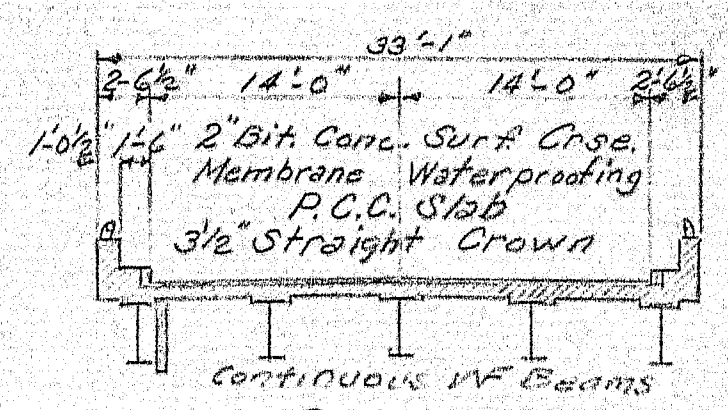 33'-1"
2'-6½" 14'-0" 14'-0" 2'-6½"
1'-0½" 1'-6" 2" Bit. Conc. Surf. Crse.
Membrane Waterproofing
P.C.C. Slab
3½" Straight Crown
Continuous WF Beams